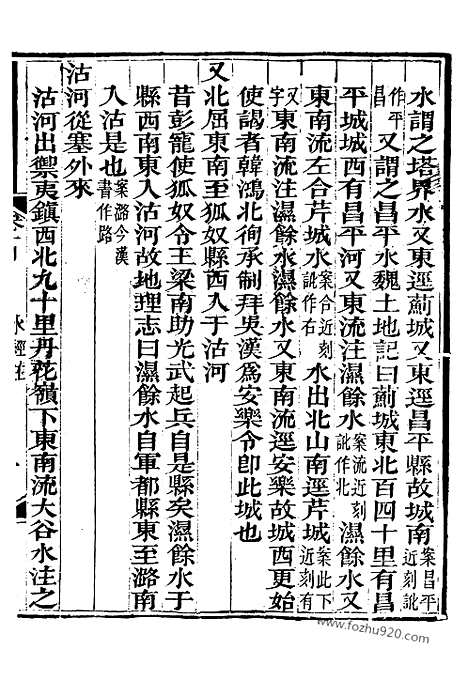 水謂之塔界水又東逕薊城又東逕昌平縣故城南案昌平近刻訛
作平昌又謂之昌平水魏土地記曰薊城東北百四十里有昌
平城城西有昌平河又東流注濕餘水案流近刻訛作北濕餘水又
東南流左合芹城水案合近刻訛作右水出北山南逕芹城案此下近刻有
又字東南流注濕餘水濕餘水又東南流逕安樂故城西更始
使謁者韓鴻北徇承制拜吳漢為安樂令卽此城也
又北屈東南至狐奴縣西入于沽河
昔彭寵使狐奴令王梁南助光武起兵自是縣矣濕餘水于
縣西南東入沽河故地理志曰濕餘水自軍都縣東至潞南
入沽是也案潞今漢書作路
沽河從塞外來
沽河出禦夷鎮西北九十里丹花嶺下東南流大谷水注之
水經注
www.fozhu920.com